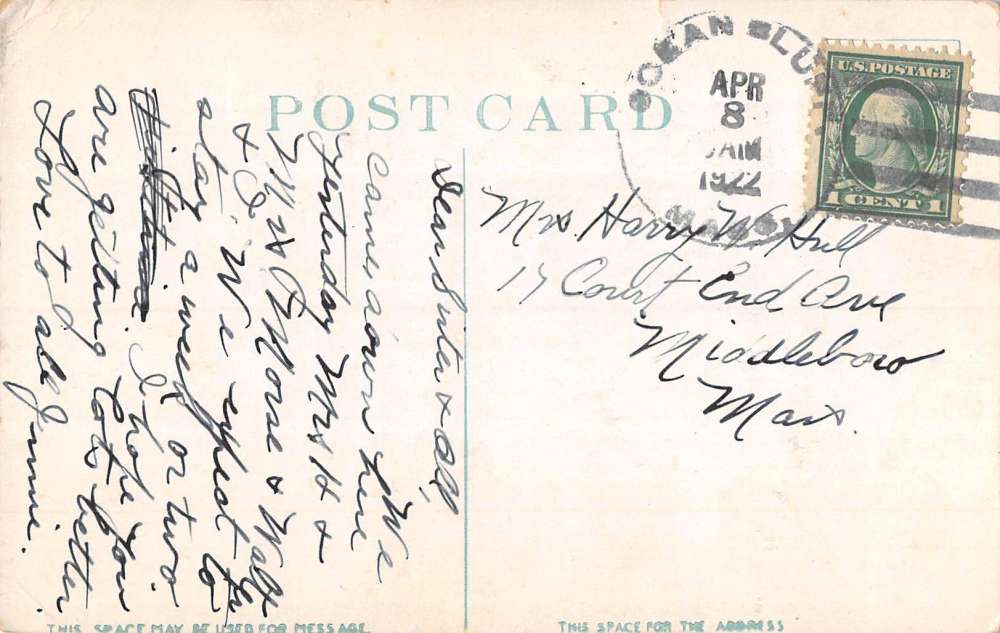 POST CARD
OCEAN BLUFF
APR
8
AM
1922
MASS
U.S. POSTAGE
1 CENT 1
Mrs. Harry W Hull
17 Court End Ave
Middleboro
Mass.
Dear Sister & all, We
came down here
Yesterday Mrs H &
Mrs Morse & Walter
& I. We expect to
stay a week or two
I hope you
are getting lots better
Love to all Jennie.
THIS SPACE MAY BE USED FOR MESSAGE
THIS SPACE FOR THE ADDRESS